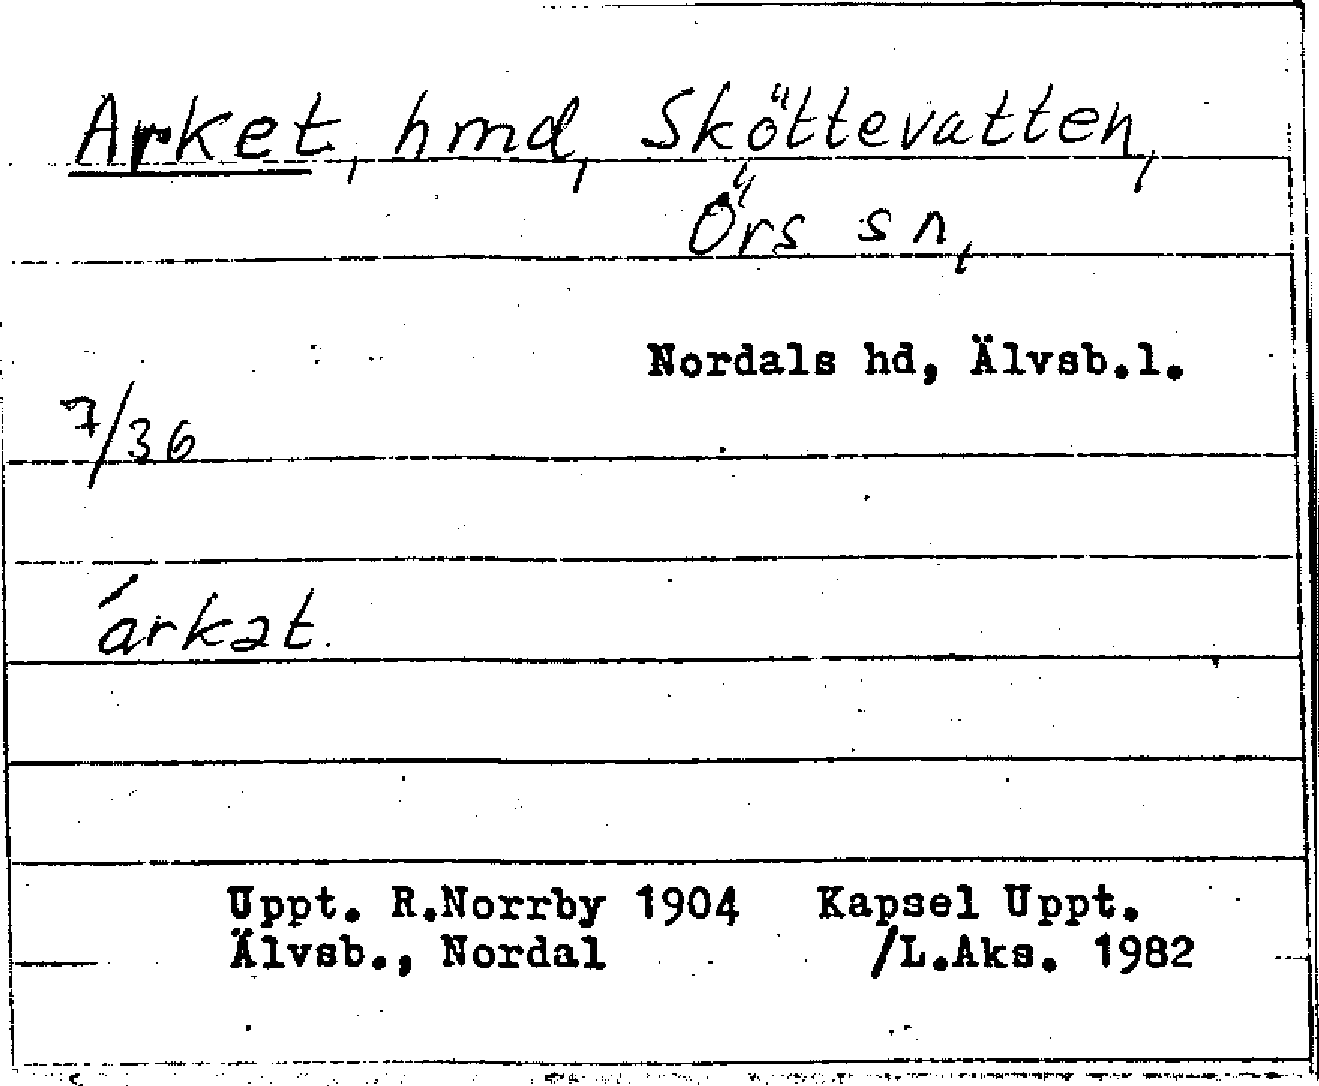 Arket, hmd, Sköttevatten,
Örs sn,
Nordals hd, Älvsb.l.
7/36
árkət.
Uppt. R.Norrby 1904 Kapsel Uppt.
Älvsb., Nordal /L.Aks. 1982